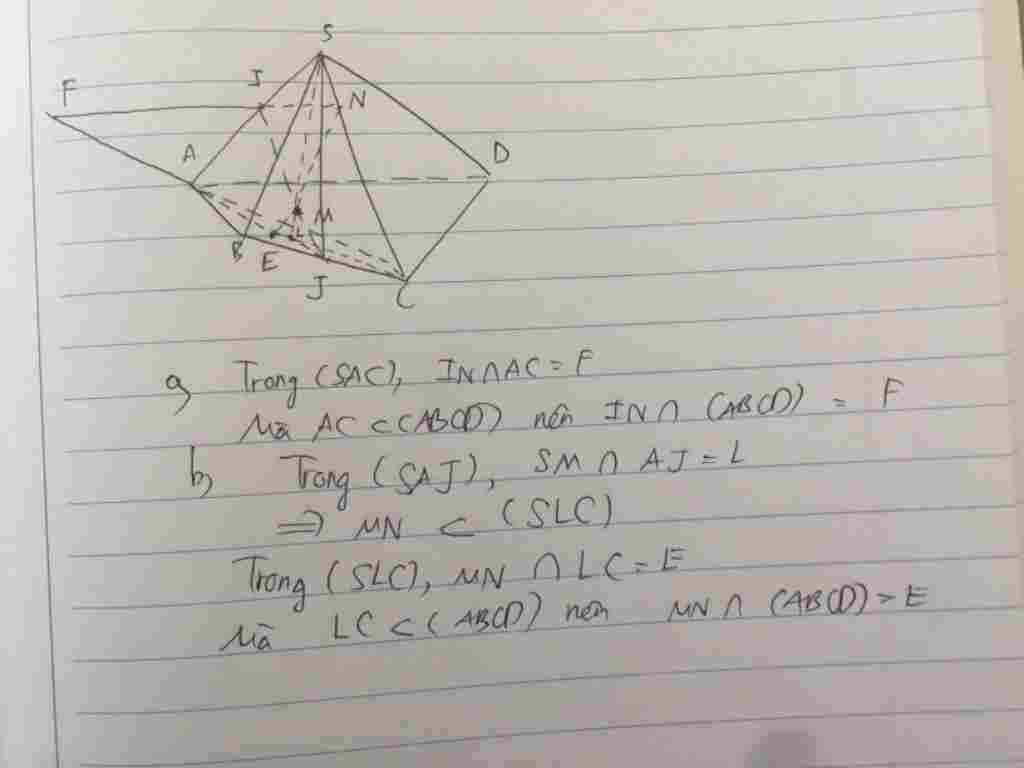 S
F
I
N
A
D
M
B
E
J
C
a, Trong (SAC), IN∩AC = F
Mà AC ⊂ (ABCD) nên IN ∩ (ABCD) = F
b, Trong (SAJ), SM ∩ AJ = L
⇒ MN ⊂ (SLC)
Trong (SLC), MN ∩ LC = E
Mà LC ⊂ (ABCD) nên MN ∩ (ABCD) = E